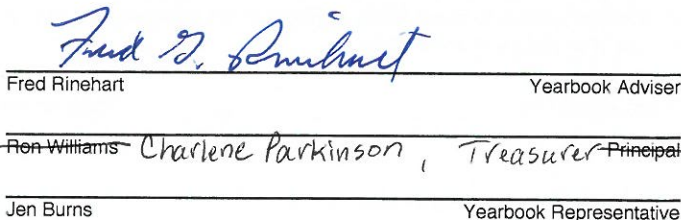 Fred G. Rinehart
Fred Rinehart Yearbook Adviser
Ron Williams Charlene Parkinson, Treasurer Principal
Jen Burns Yearbook Representative